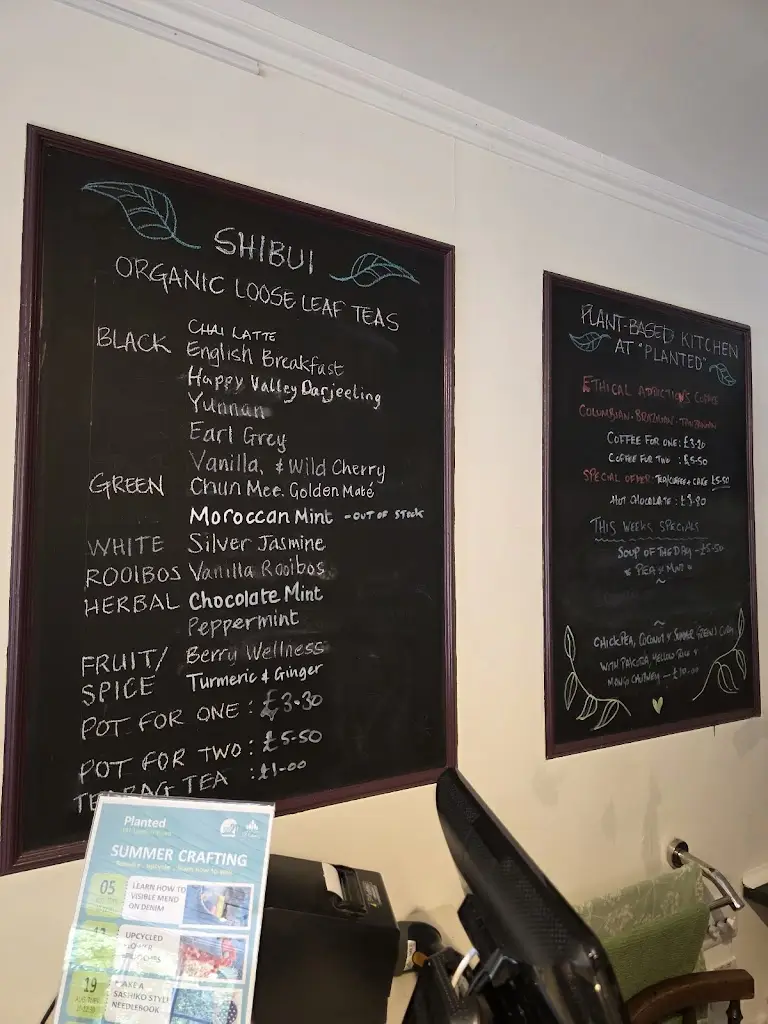 SHIBUI
ORGANIC LOOSE LEAF TEAS
CHAI LATTE
BLACK English Breakfast
Happy Valley Darjeeling
Yunnan
Earl Grey
Vanilla, & Wild Cherry
GREEN Chun Mee. Golden Maté
Moroccan Mint - OUT OF STOCK
WHITE Silver Jasmine
ROOIBOS Vanilla Rooibos
HERBAL Chocolate Mint
Peppermint
FRUIT/ Berry Wellness
SPICE Turmeric & Ginger
POT FOR ONE : £3.30
POT FOR TWO : £5.50
TEABAG TEA : £1.00
PLANT-BASED KITCHEN
AT "PLANTED"
ETHICAL ADDICTIONS COFFEE
COLUMBIAN. BRAZILIAN. TANZANIAN
COFFEE FOR ONE : £3.20
COFFEE FOR TWO : £5.50
SPECIAL OFFER: TEA/COFFEE + CAKE £5.50
HOT CHOCOLATE : £3.80
THIS WEEKS SPECIALS
SOUP OF THE DAY - £5.50
PEA & MINT
CHICKPEA, COCONUT & SUMMER GREENS CURRY
WITH PAKORA, YELLOW RICE &
MANGO CHUTNEY - £10.00
Planted
SUMMER CRAFTING
05
LEARN HOW TO
VISIBLE MEND
ON DENIM
UPCYCLED
19
MAKE A
SASHIKO STYLE
NEEDLEBOOK